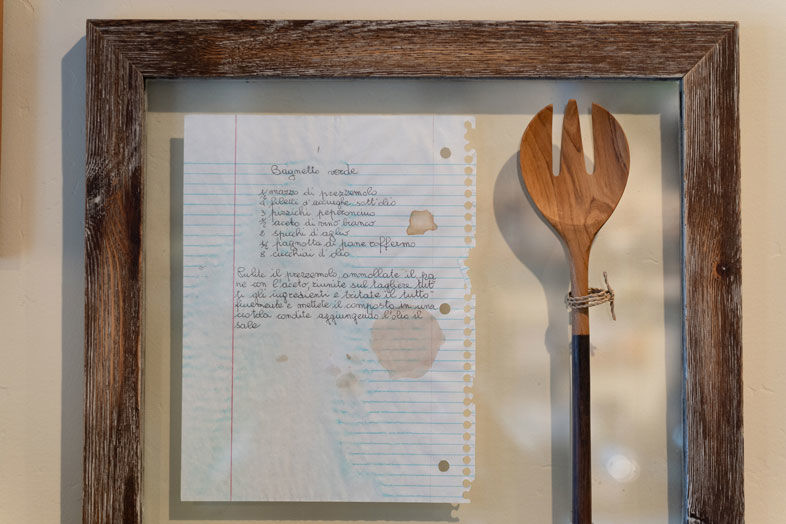 1
Bagnetto verde
½ mazzo di prezzemolo
4 filetti d'acciughe sott'olio
3 pizzichi peperoncino
½ aceto di vino bianco
2 spicchi d'aglio
¼ pagnotta di pane raffermo
8 cucchiai d olio
Pulite il prezzemolo, ammollate il pa
ne con l'aceto, riunite sul tagliere tut
ti gli ingredienti e tritate il tutto
finemente e mettete il composto in una
ciotola condite aggiungendo l'olio il
sale